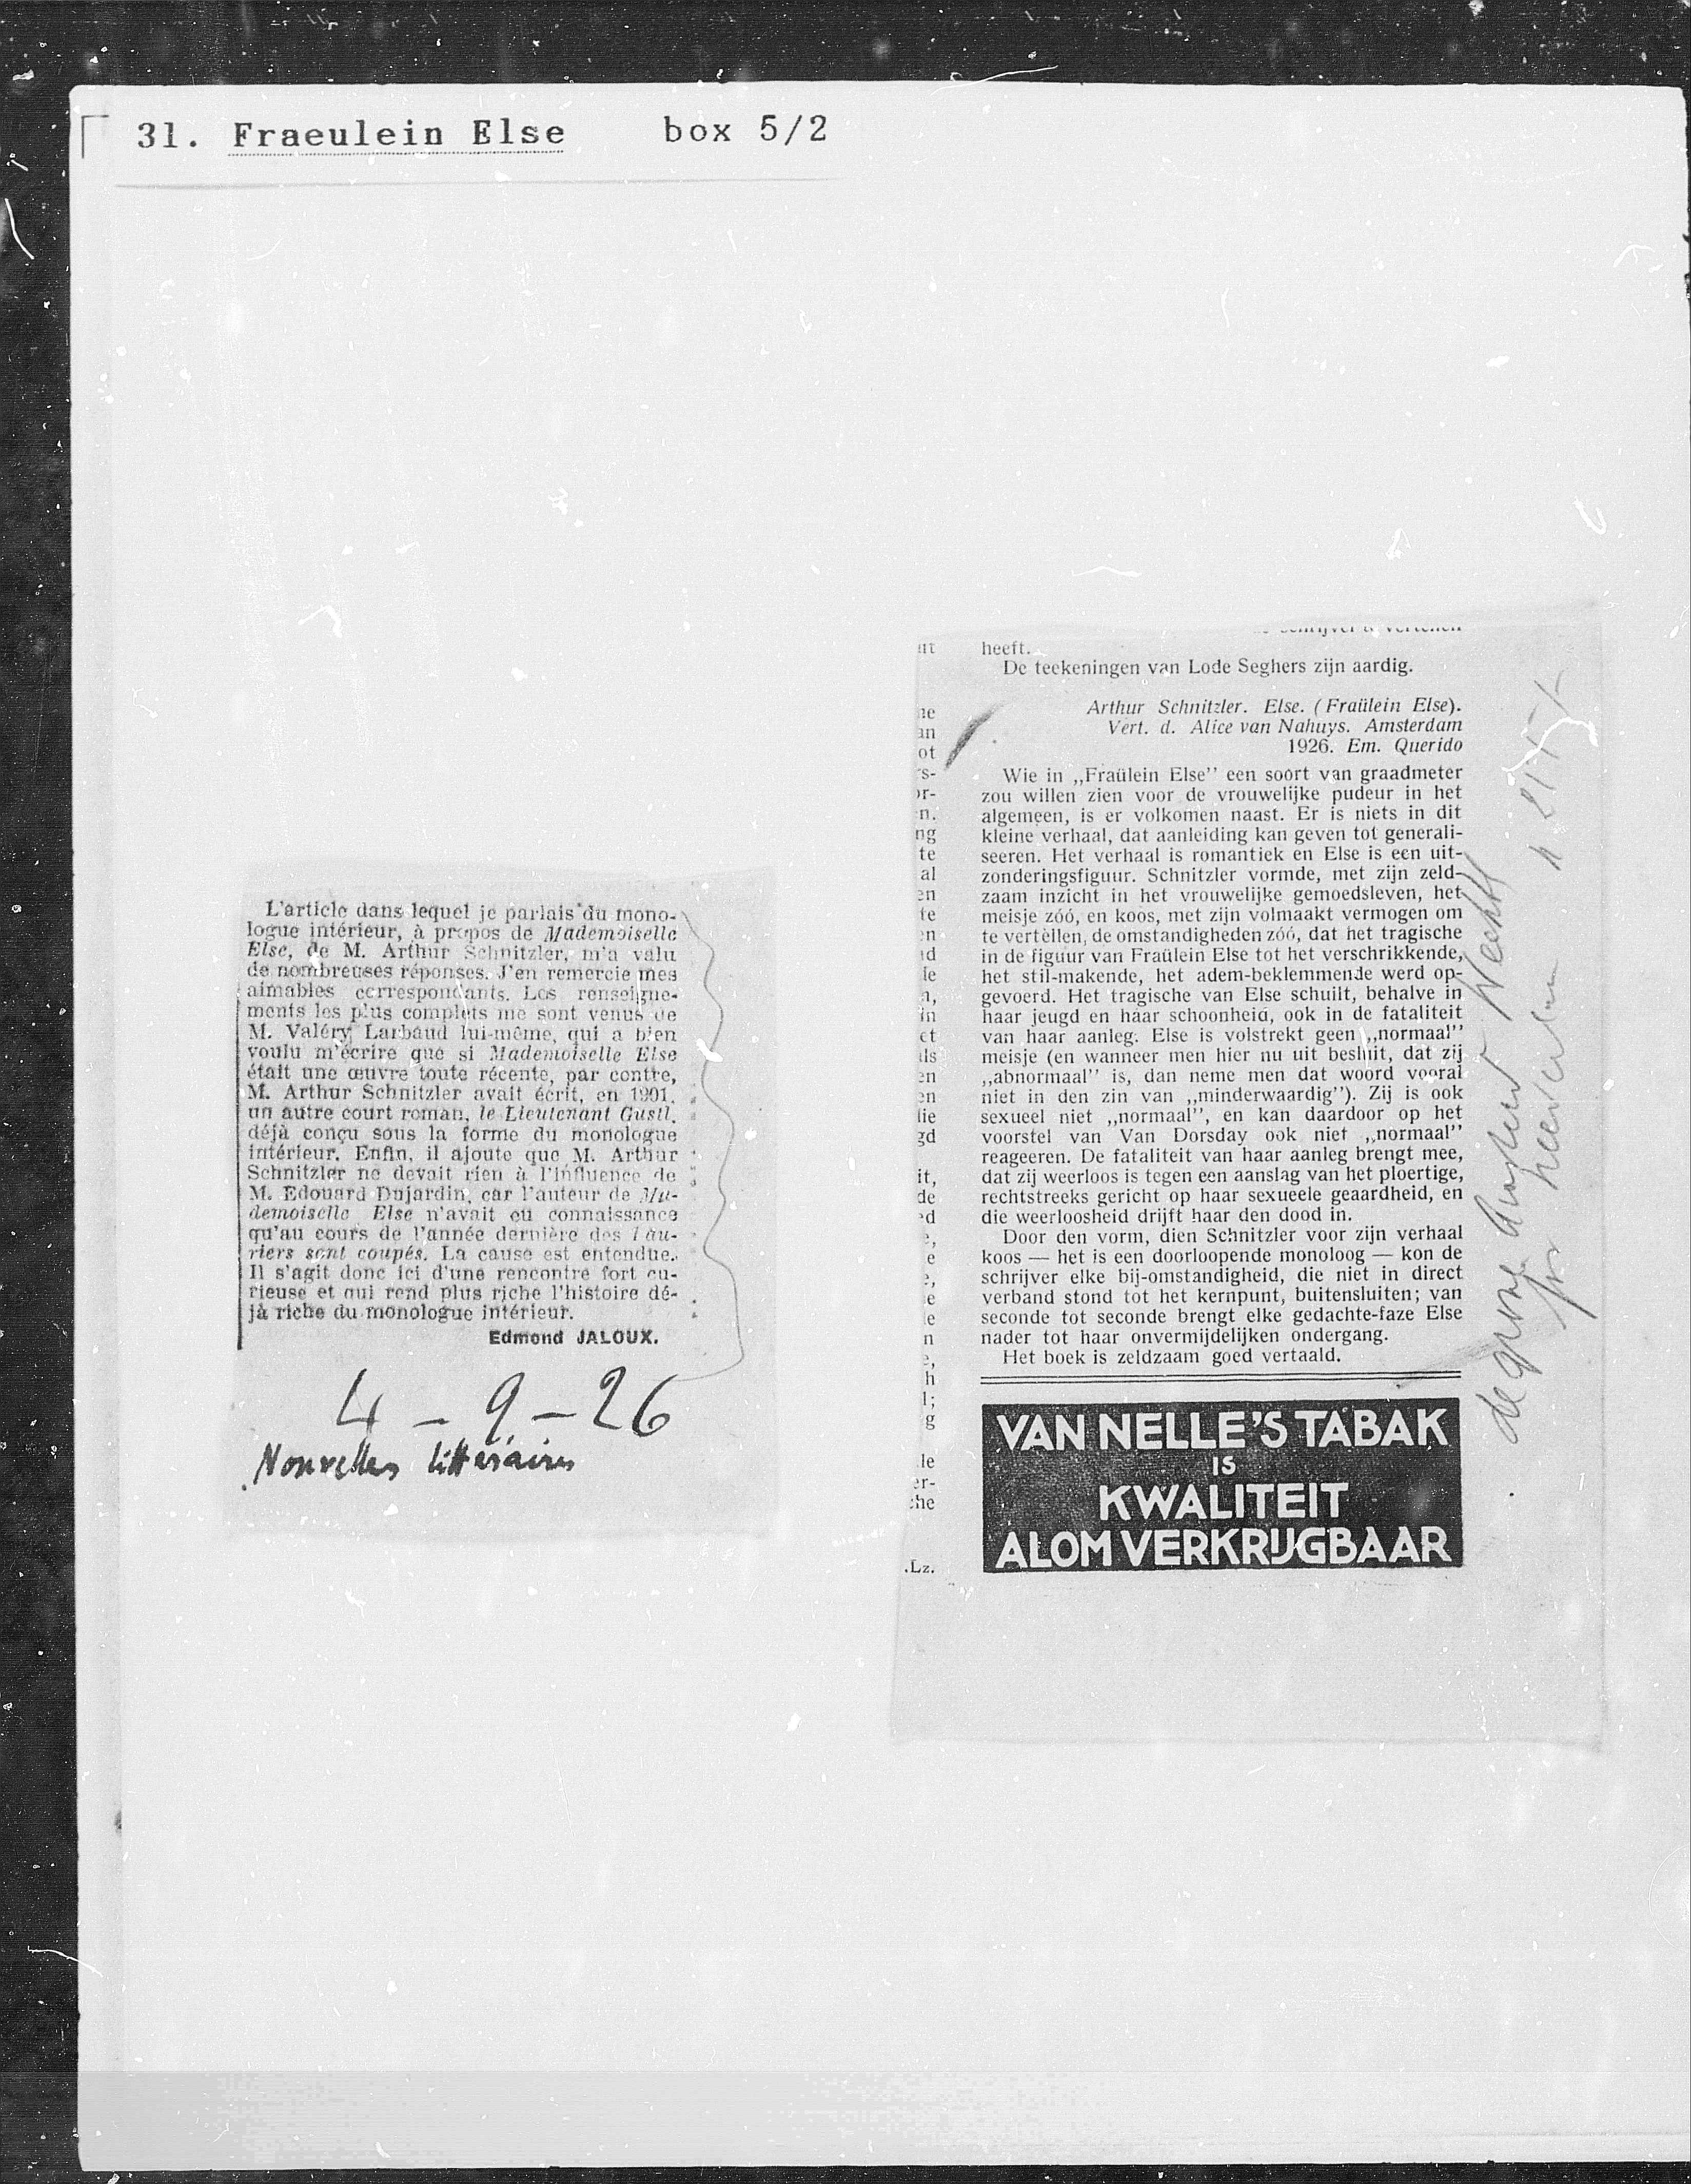 31. Fraeulein Else box 5/2
L'article dans lequel je parlais du mono-
logue intérieur, à propos de Mademoiselle
Else, de M. Arthur Schnitzler, m'a valu
de nombreuses réponses. J'en remercie mes
aimables correspondants. Les renseigne-
ments les plus complets me sont venus de
M. Valéry Larbaud lui-même, qui a bien
voulu m'écrire que si Mademoiselle Else
était une œuvre toute récente, par contre,
M. Arthur Schnitzler avait écrit, en 1901,
un autre court roman, le Lieutenant Gustl,
déjà conçu sous la forme du monologue
intérieur. Enfin, il ajoute que M. Arthur
Schnitzler ne devait rien à l'influence de
M. Edouard Dujardin, car l'auteur de Ma-
demoiselle Else n'avait eu connaissance
qu'au cours de l'année dernière des Lau-
riers sont coupés. La cause est entendue.
Il s'agit donc ici d'une rencontre fort cu-
rieuse et qui rend plus riche l'histoire dé-
jà riche du monologue intérieur.
Edmond JALOUX.
4 - 9 - 26
Nouvelles littéraires
heeft.
De teekeningen van Lode Seghers zijn aardig.
Arthur Schnitzler. Else. (Fraülein Else).
Vert. d. Alice van Nahuys. Amsterdam
1926. Em. Querido
Wie in „Fraülein Else” een soort van graadmeter
zou willen zien voor de vrouwelijke pudeur in het
algemeen, is er volkomen naast. Er is niets in dit
kleine verhaal, dat aanleiding kan geven tot generali-
seeren. Het verhaal is romantiek en Else is een uit-
zonderingsfiguur. Schnitzler vormde, met zijn zeld-
zaam inzicht in het vrouwelijke gemoedsleven, het
meisje zóó, en koos, met zijn volmaakt vermogen om
te vertèllen, de omstandigheden zóó, dat het tragische
in de figuur van Fraülein Else tot het verschrikkende,
het stil-makende, het adem-beklemmende werd op-
gevoerd. Het tragische van Else schuilt, behalve in
haar jeugd en haar schoonheid, ook in de fataliteit
van haar aanleg. Else is volstrekt geen „normaal”
meisje (en wanneer men hier nu uit besluit, dat zij
„abnormaal” is, dan neme men dat woord vooral
niet in den zin van „minderwaardig”). Zij is ook
sexueel niet „normaal”, en kan daardoor op het
voorstel van Van Dorsday ook niet „normaal”
reageeren. De fataliteit van haar aanleg brengt mee,
dat zij weerloos is tegen een aanslag van het ploertige,
rechtstreeks gericht op haar sexueele geaardheid, en
die weerloosheid drijft haar den dood in.
Door den vorm, dien Schnitzler voor zijn verhaal
koos — het is een doorloopende monoloog — kon de
schrijver elke bij-omstandigheid, die niet in direct
verband stond tot het kernpunt, buitensluiten; van
seconde tot seconde brengt elke gedachte-faze Else
nader tot haar onvermijdelijken ondergang.
Het boek is zeldzaam goed vertaald.
VAN NELLE'S TABAK
IS
KWALITEIT
ALOM VERKRIJGBAAR